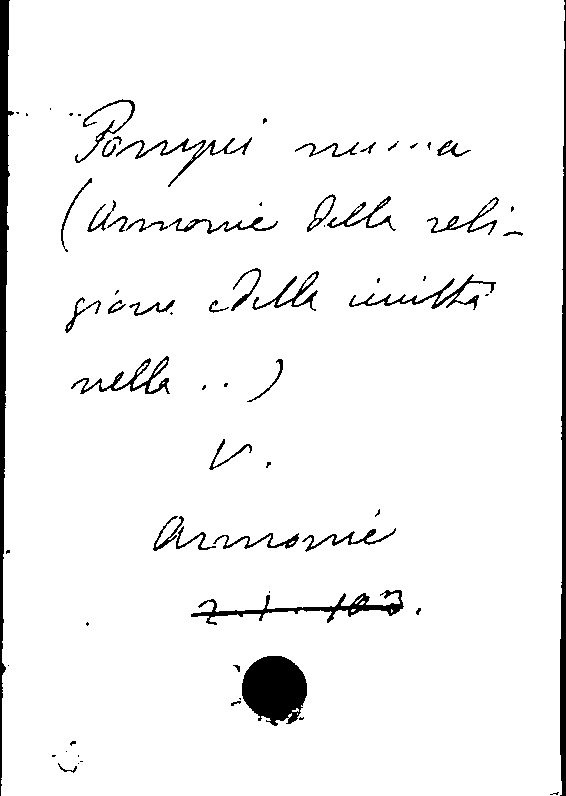 Pompei nuova
(Armonie della reli-
gione e della civiltà
nella ..)
V.
Armonie
2. 1. 103.